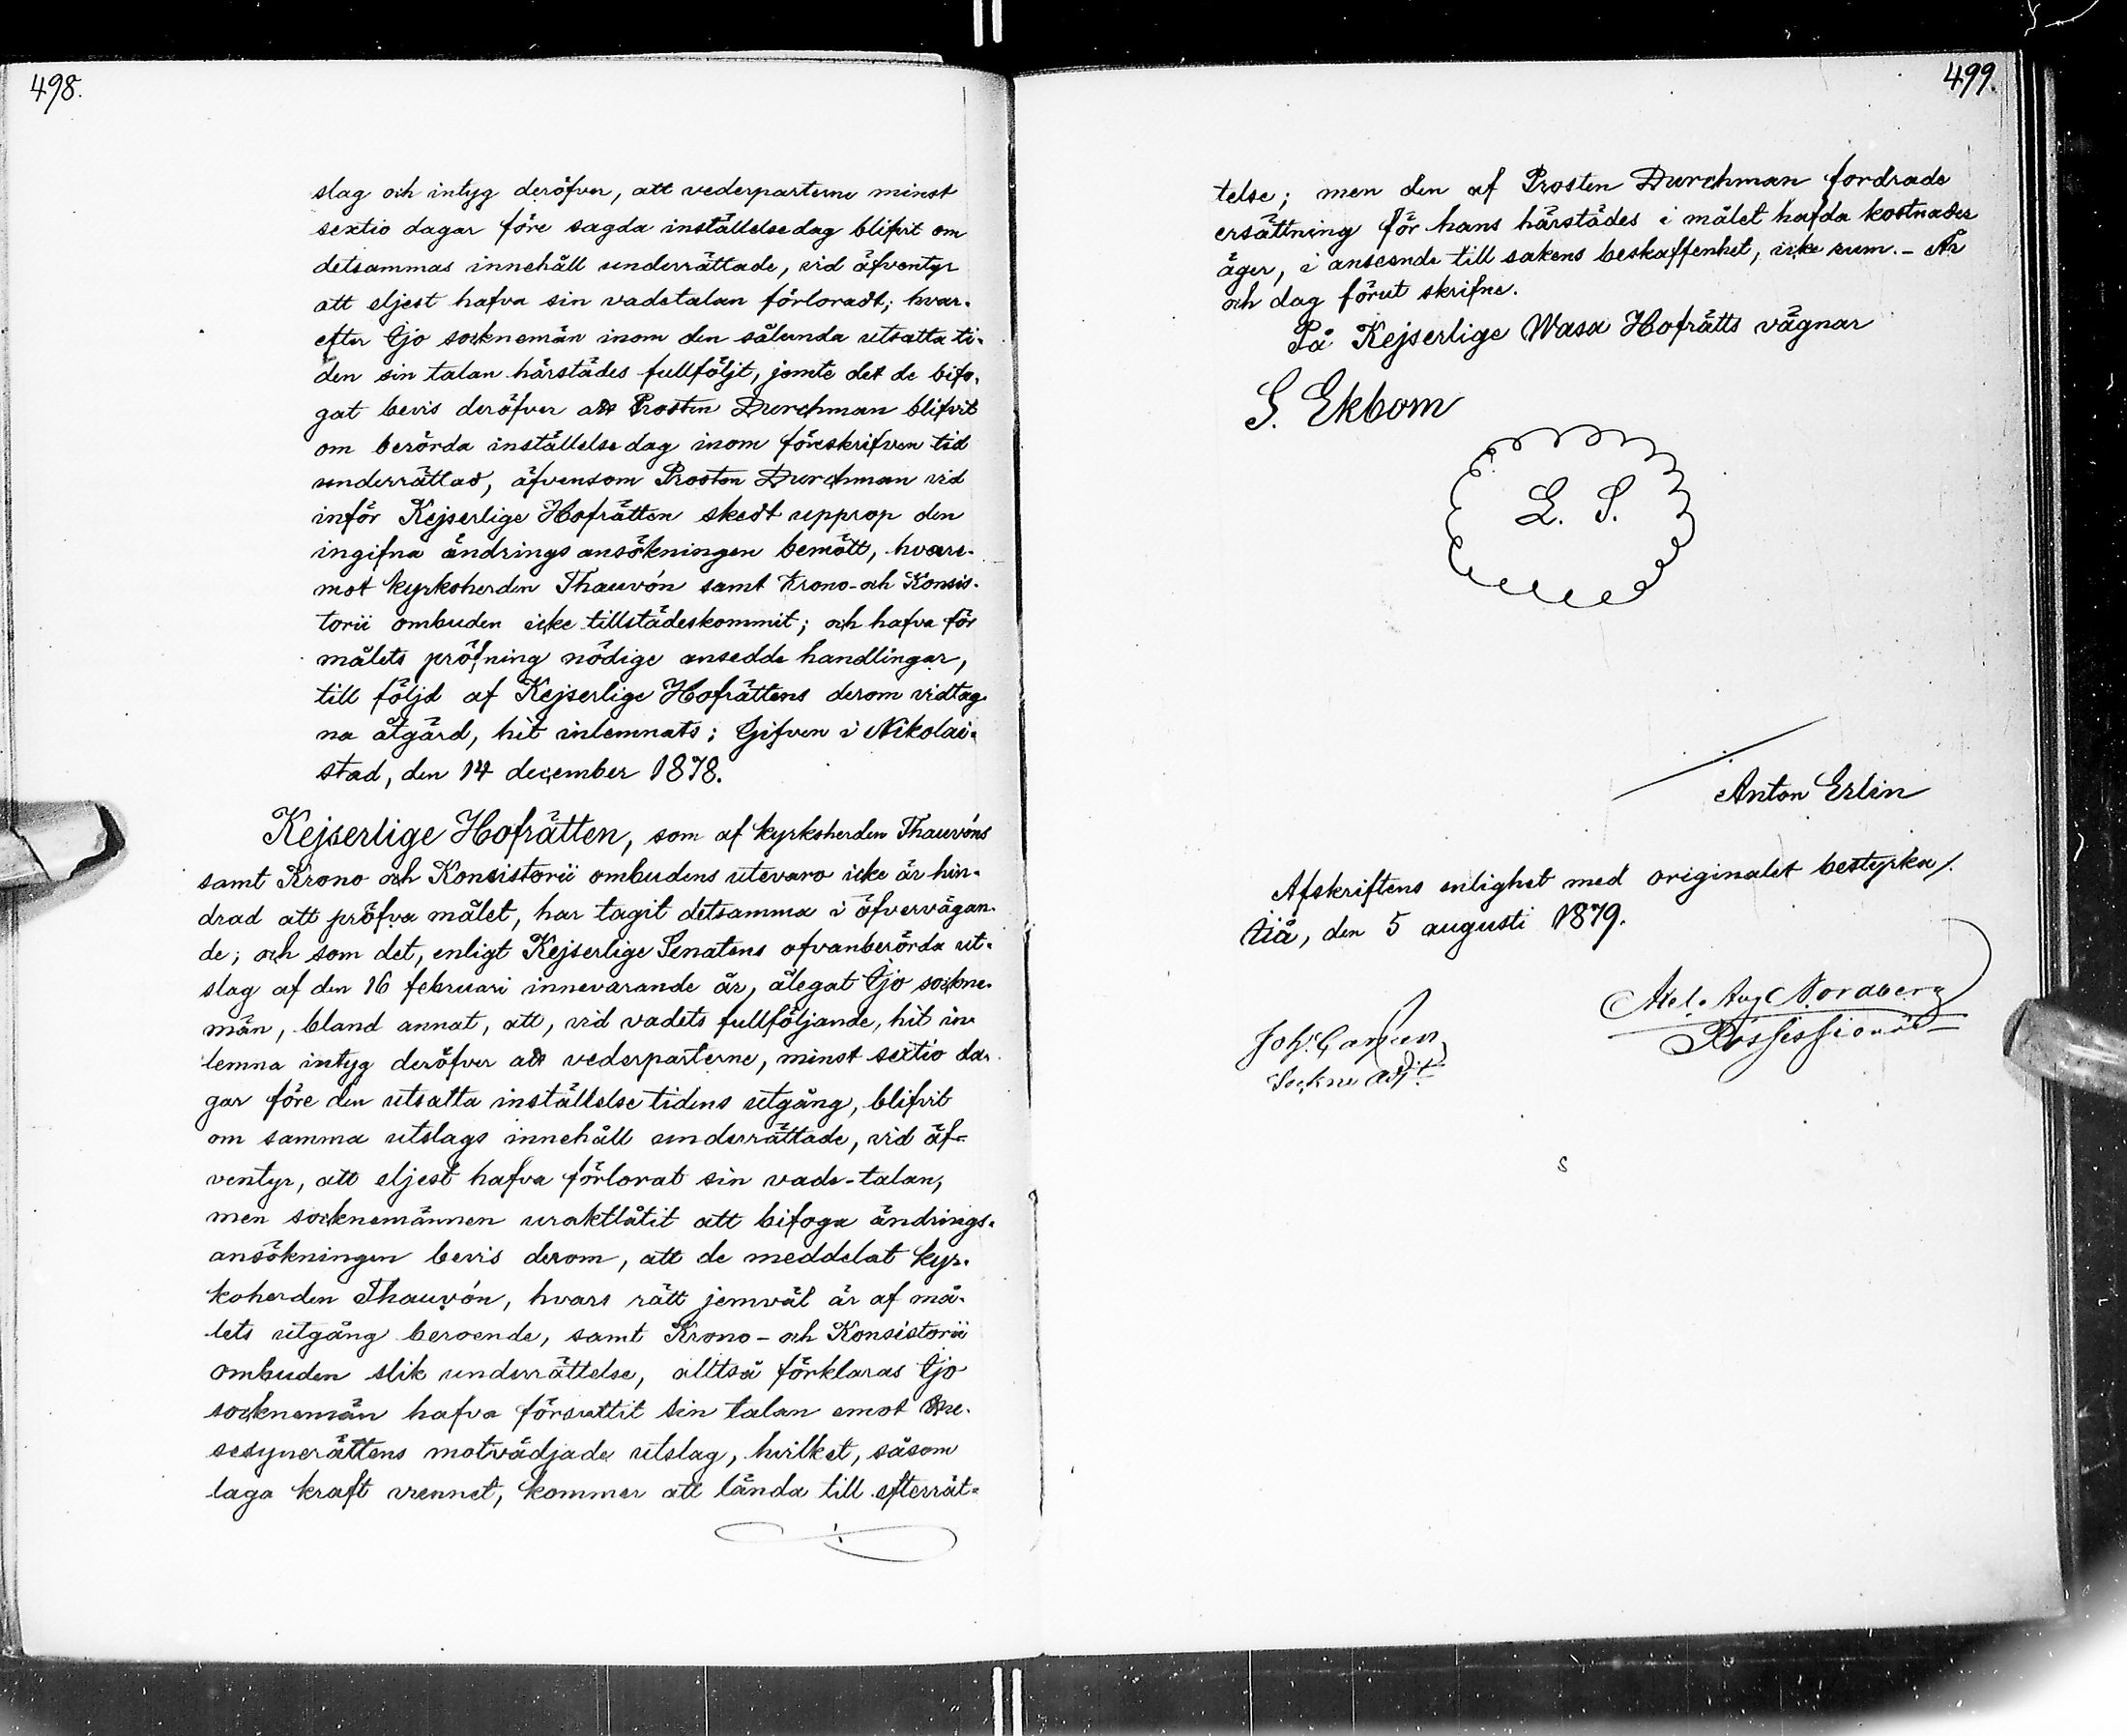 498.
slag och intyg deröfver, att vederparterne minst
sextio dagar före sagda inställelsedag blifvit om
detsammas innehåll underrättade, vid äfventyr
att eljest hafva sin vadetalan förloradt; hvar-
efter Ijo socknemän inom den sålunda utsatta ti-
den sin talan härstädes fullföljt, jemte det de bifo-
gat bevis deröfver att Prosten Durchman blifvit
om berörda inställelsedag inom föreskrifven tid
underrättad, äfvensom Prosten Durchman vid
inför Kejserlige Hofrätten skedt upprop den
ingifna ändringsansökningen bemött, hvare-
mot kyrkoherden Thauvón samt Krono- och Konsis-
torii ombuden icke tillstädeskommit; och hafva för
målets pröfning nödige ansedde handlingar,
till följd af Kejserlige Hofrättens derom vidtag-
na åtgärd, hit inlemnats; Gifven i Nikolai-
stad, den 14 december 1878.
Kejserlige Hofrätten, som af kyrkoherden Thauvóns
samt Krono och Konsistorii ombudens utevaro icke är hin-
drad att pröfva målet, har tagit detsamma i öfvervägan-
de; och som det, enligt Kejserlige Senatens ofvanberörda ut-
slag af den 16 februari innevarande år, ålegat Ijo sockne-
män, bland annat, att, vid vadets fullföljande, hit in-
lemna intyg deröfver att vederparterne, minst sextio da-
gar före den utsatta inställelsetidens utgång, blifvit
om samma utslags innehåll underrättade, vid äf-
ventyr, att eljest hafva förlorat sin vade-talan,
men socknemännen uraktlåtit att bifoga ändrings-
ansökningen bevis derom, att de meddelat kyr-
koherden Thauvón, hvars rätt jemväl är af må-
lets utgång beroende, samt Krono- och Konsistorii
ombuden slik underrättelse, alltså förklaras Ijo
socknemän hafva försuttit sin talan emot Hu-
sesynerättens motvädjade utslag, hvilket, såsom
laga kraft vunnet, kommer att lända till efterrät-
499.
telse; men den af Prosten Durchman fordrade
ersättning för hans härstädes i målet hafda kostnader
äger, i anseende till sakens beskaffenhet, icke rum. - År
och dag förut skrifne.
På Kejserlige Wasa Hofrätts vägnar
S. Ekbom
L. S.
Anton Erlin
Afskriftens enlighet med originalet bestyrka/.
Iiå, den 5 augusti 1879.
Axel Aug Nordberg
Possessionat
Joh.
Sockne Adjt